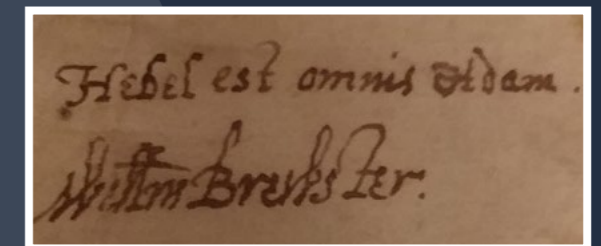 Hebel est omnis Adam.
Willm Brewster.